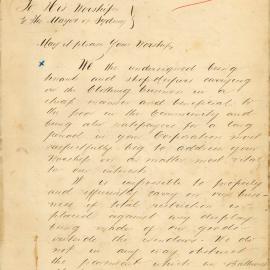 To His Worship
The Mayor of Sydney
May it please Your Worship
We the undersigned being
tenants and shopkeepers carrying
on the Clothing business in a
cheap manner and beneficial to
the poor in the Community and
being also ratepayers for a long
period in your Corporation most
respectfully beg to address your
Worship on a matter most vital
to our interest
It is impossible to properly
and efficiently carry on our busi-
ness if total restriction is
placed against any display
being made of our goods
outside the windows. We do
not in any way obstruct
the pavement which in Bathurst